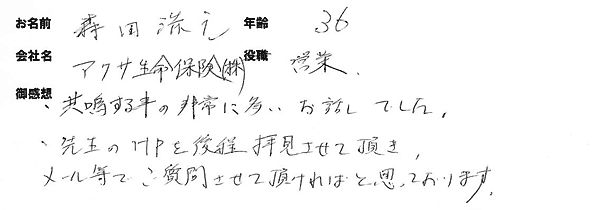 お名前 森田 浩之 年齢 36
会社名 アクサ生命保険(株) 役職 営業
御感想
・共鳴する事の非常に多い お話しでした。
・先生のHPを後程拝見させて頂き、
メール等でご質問させて頂ければと思っております。